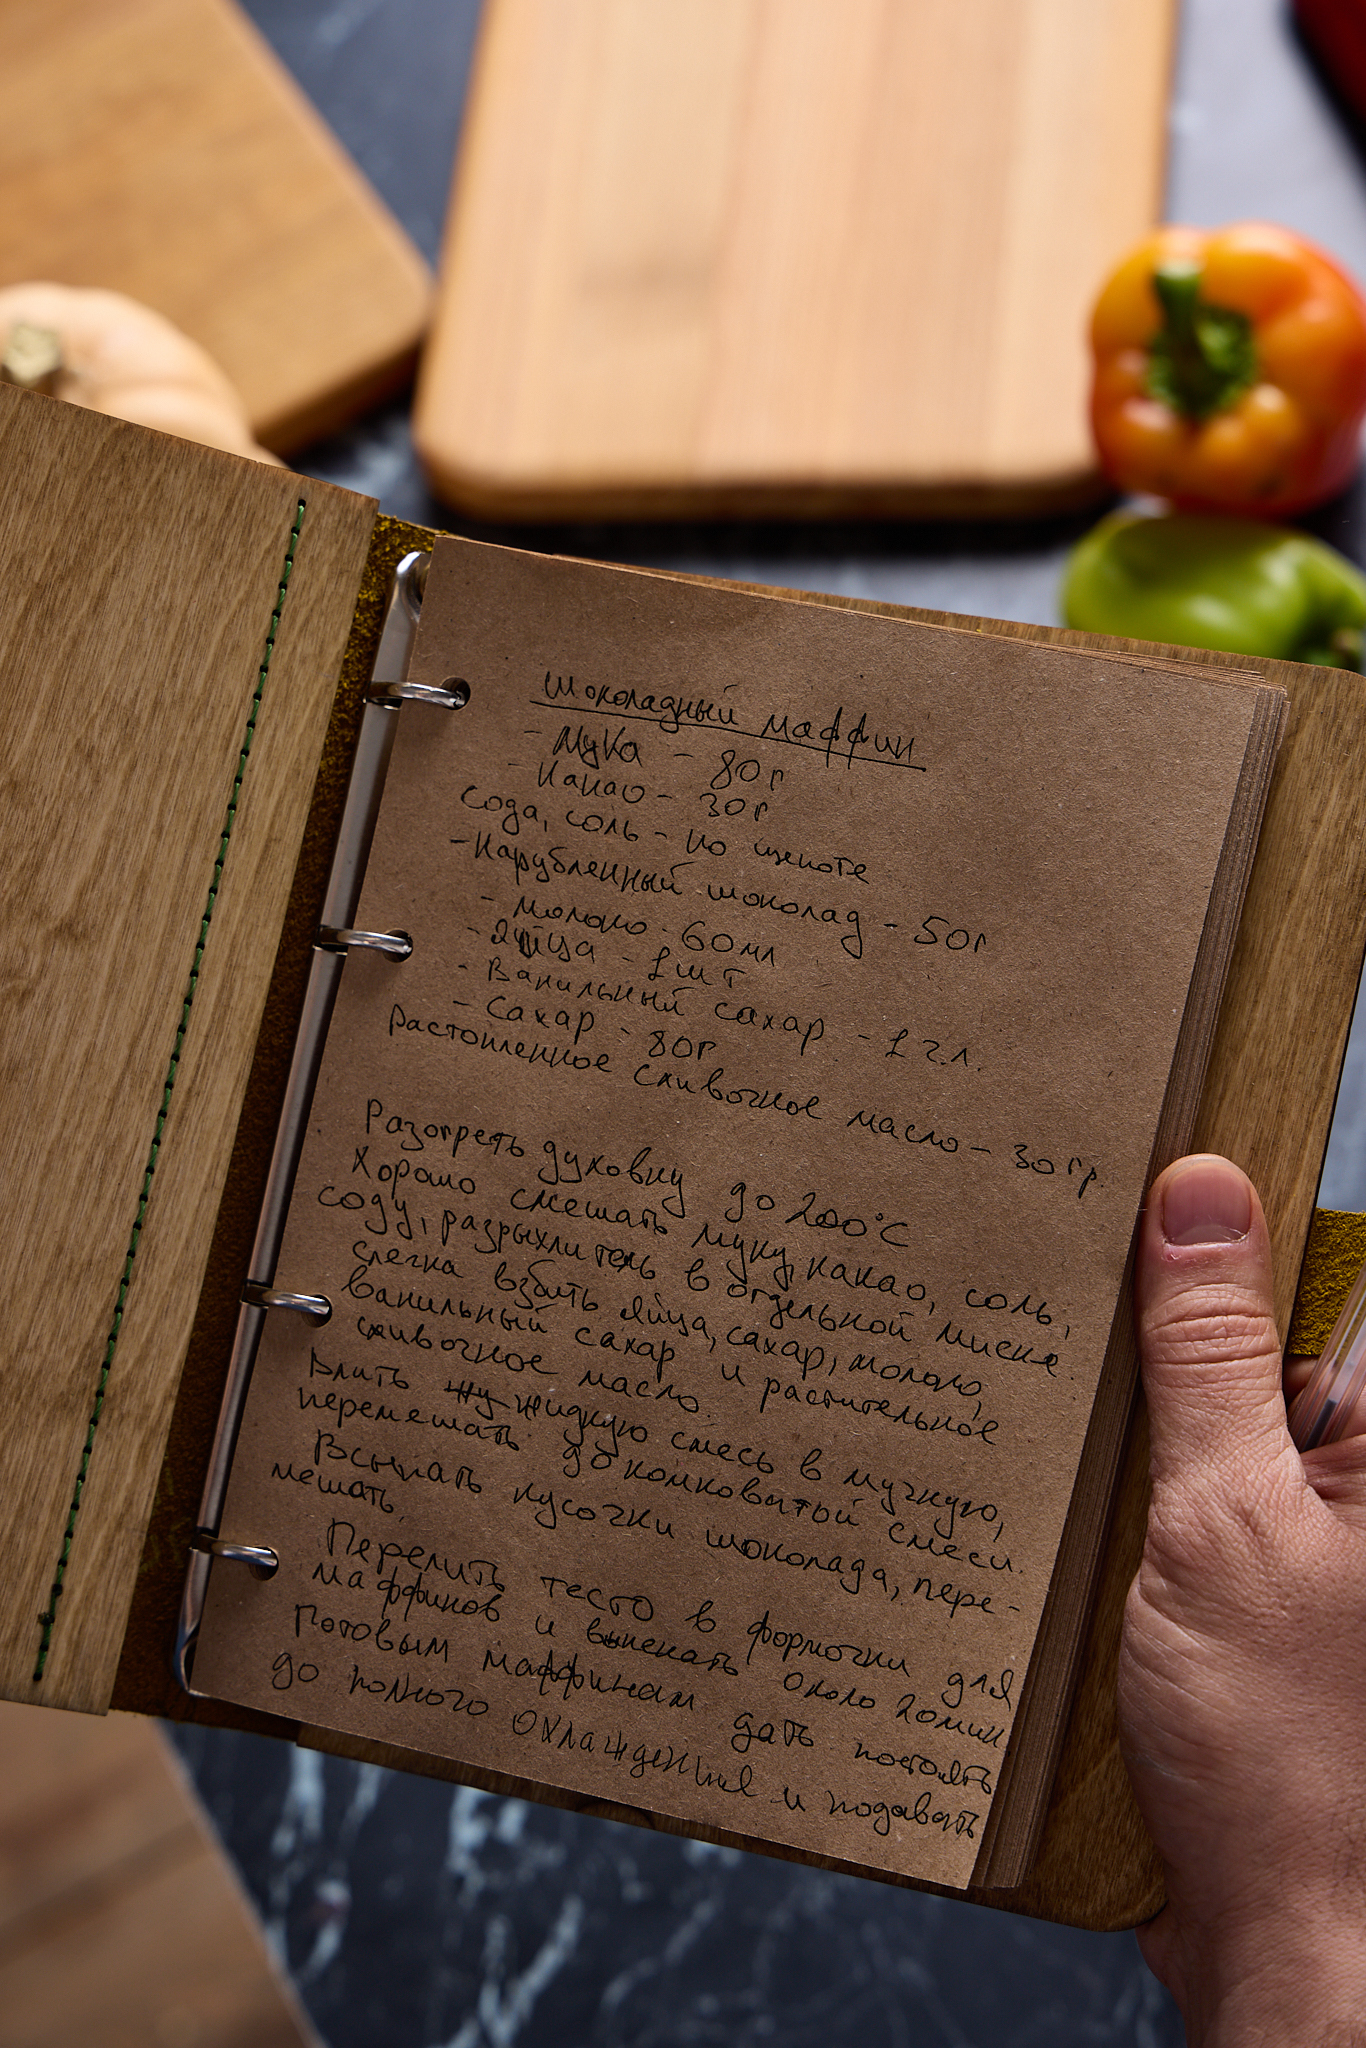 Шоколадный маффин
- Мука - 80 г
- Какао - 30 г
Сода, соль - по щепоте
- Нарубленный шоколад - 50 г
- Молоко - 60 мл
- Яйца - 1 шт
- Ванильный сахар - 1 ч.л.
- Сахар - 80г
Растопленное сливочное масло - 30 гр.
Разогреть духовку до 200°C
Хорошо смешать муку, какао, соль,
соду, разрыхлитель в отдельной миске.
слегка взбить яйца, сахар, молоко,
ванильный сахар и растительное
сливочное масло.
Влить жидкую смесь в мучную,
перемешать до комковатой смеси.
Всыпать кусочки шоколада, пере-
мешать.
Перелить тесто в формочки для
маффинов и выпекать около 20мин
Готовым маффинам дать постоять
до полного охлаждения и подавать